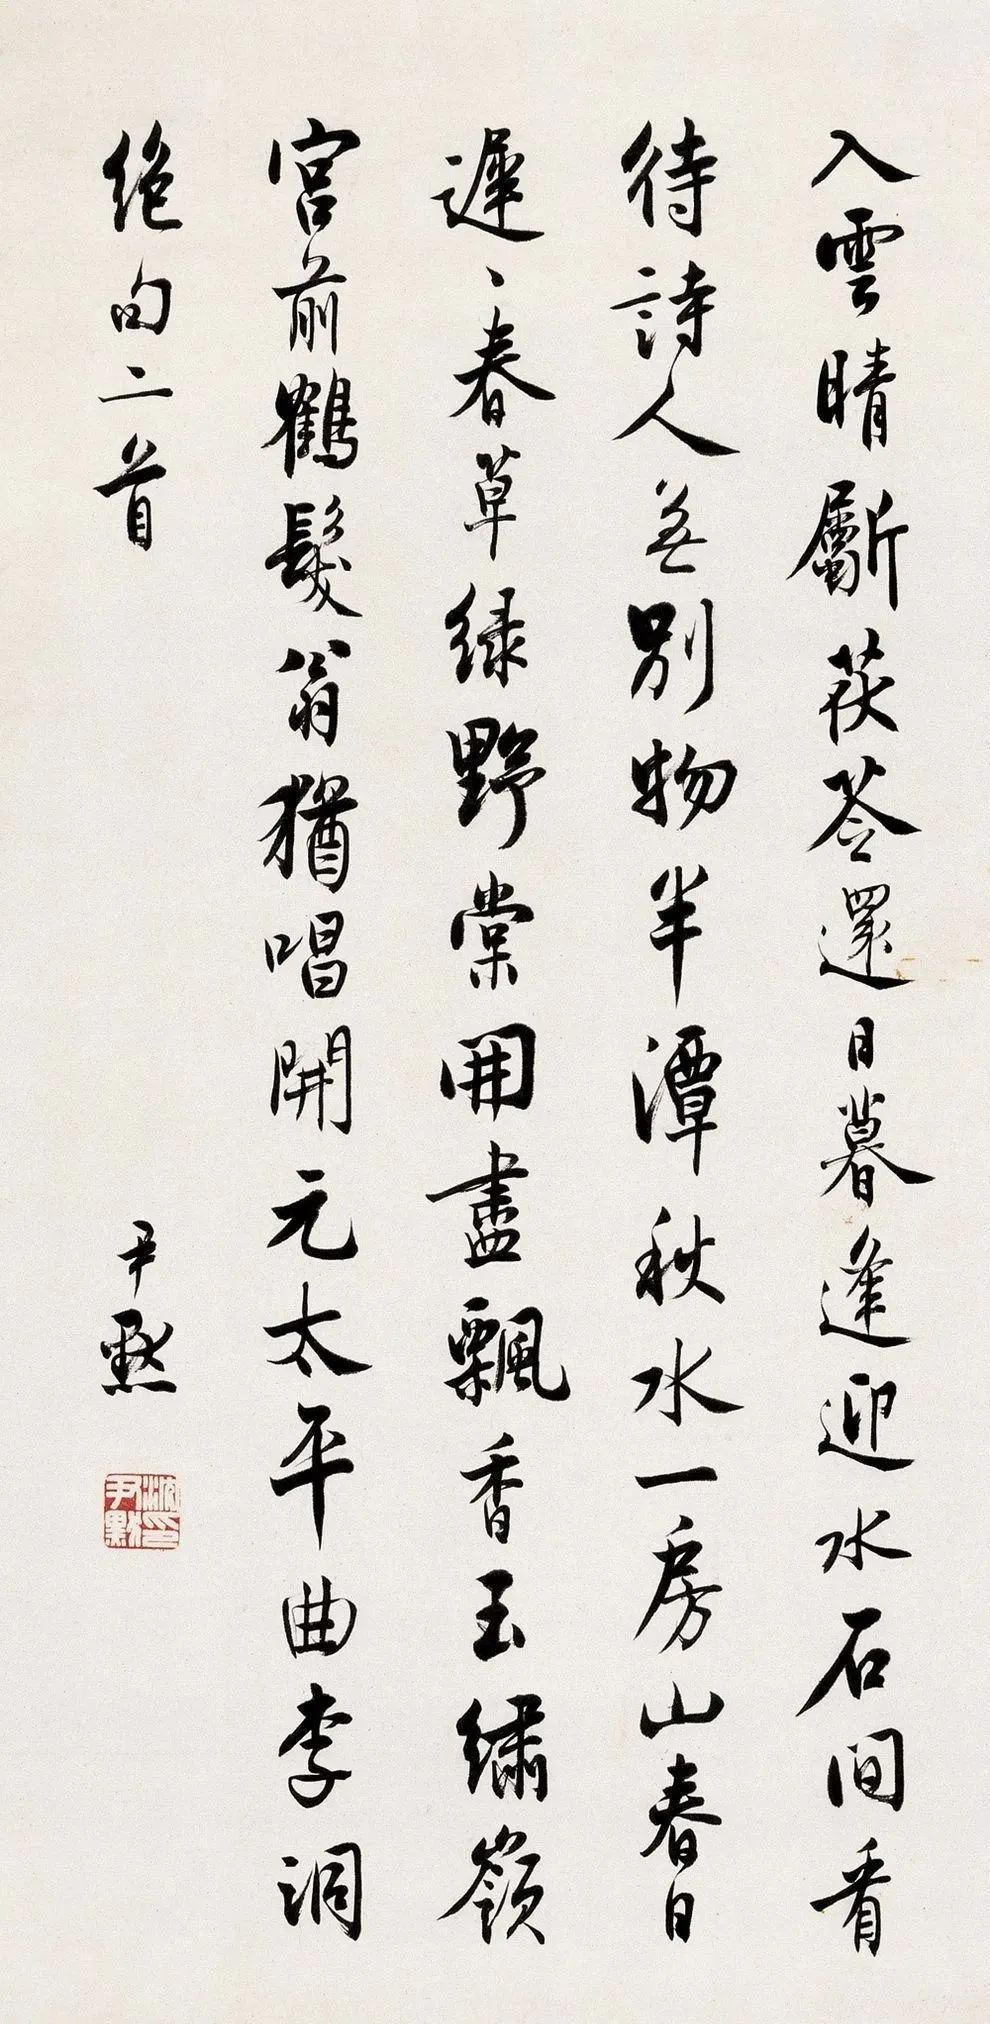 入雲晴斸茯苓還日暮逢迎水石間看
待詩人無別物半潭秋水一房山春日
遲、春草綠野棠開盡飄香玉繡嶺
宮前鶴髮翁猶唱開元太平曲李洞
絕句二首
尹默
沈尹默印